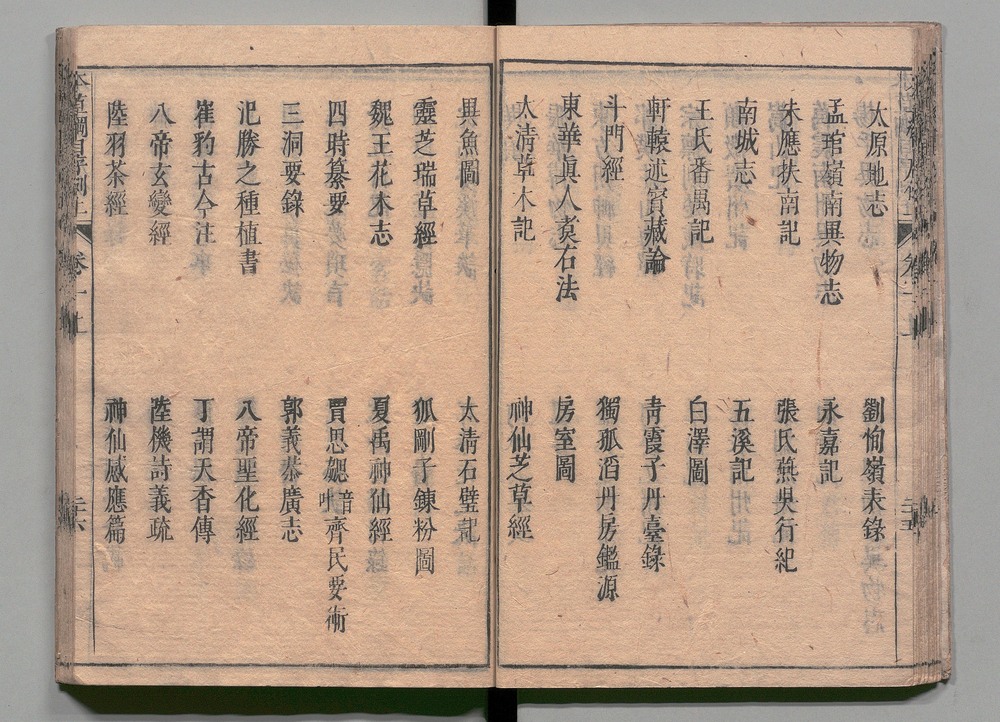 太原地志
劉恂嶺表錄
孟琯嶺南異物志
永嘉記
朱應扶南記
張氏燕吳行紀
南城志
五溪記
王氏番禺記
白澤圖
軒轅述寶藏論
青霞子丹臺錄
斗門經
獨孤滔丹房鑑源
東華眞人煑石法
房室圖
太清草木記
神仙芝草經
異魚圖
太清石壁記
靈芝瑞草經
狐剛子鍊粉圖
魏王花木志
夏禹神仙經
四時纂要
賈思勰音叶齊民要術
三洞要錄
郭義恭廣志
氾勝之種植書
八帝聖化經
崔豹古今注
丁謂天香傳
八帝玄變經
陸機詩義疏
陸羽茶經
神仙感應篇
本草綱目序例上 卷一上 二十六